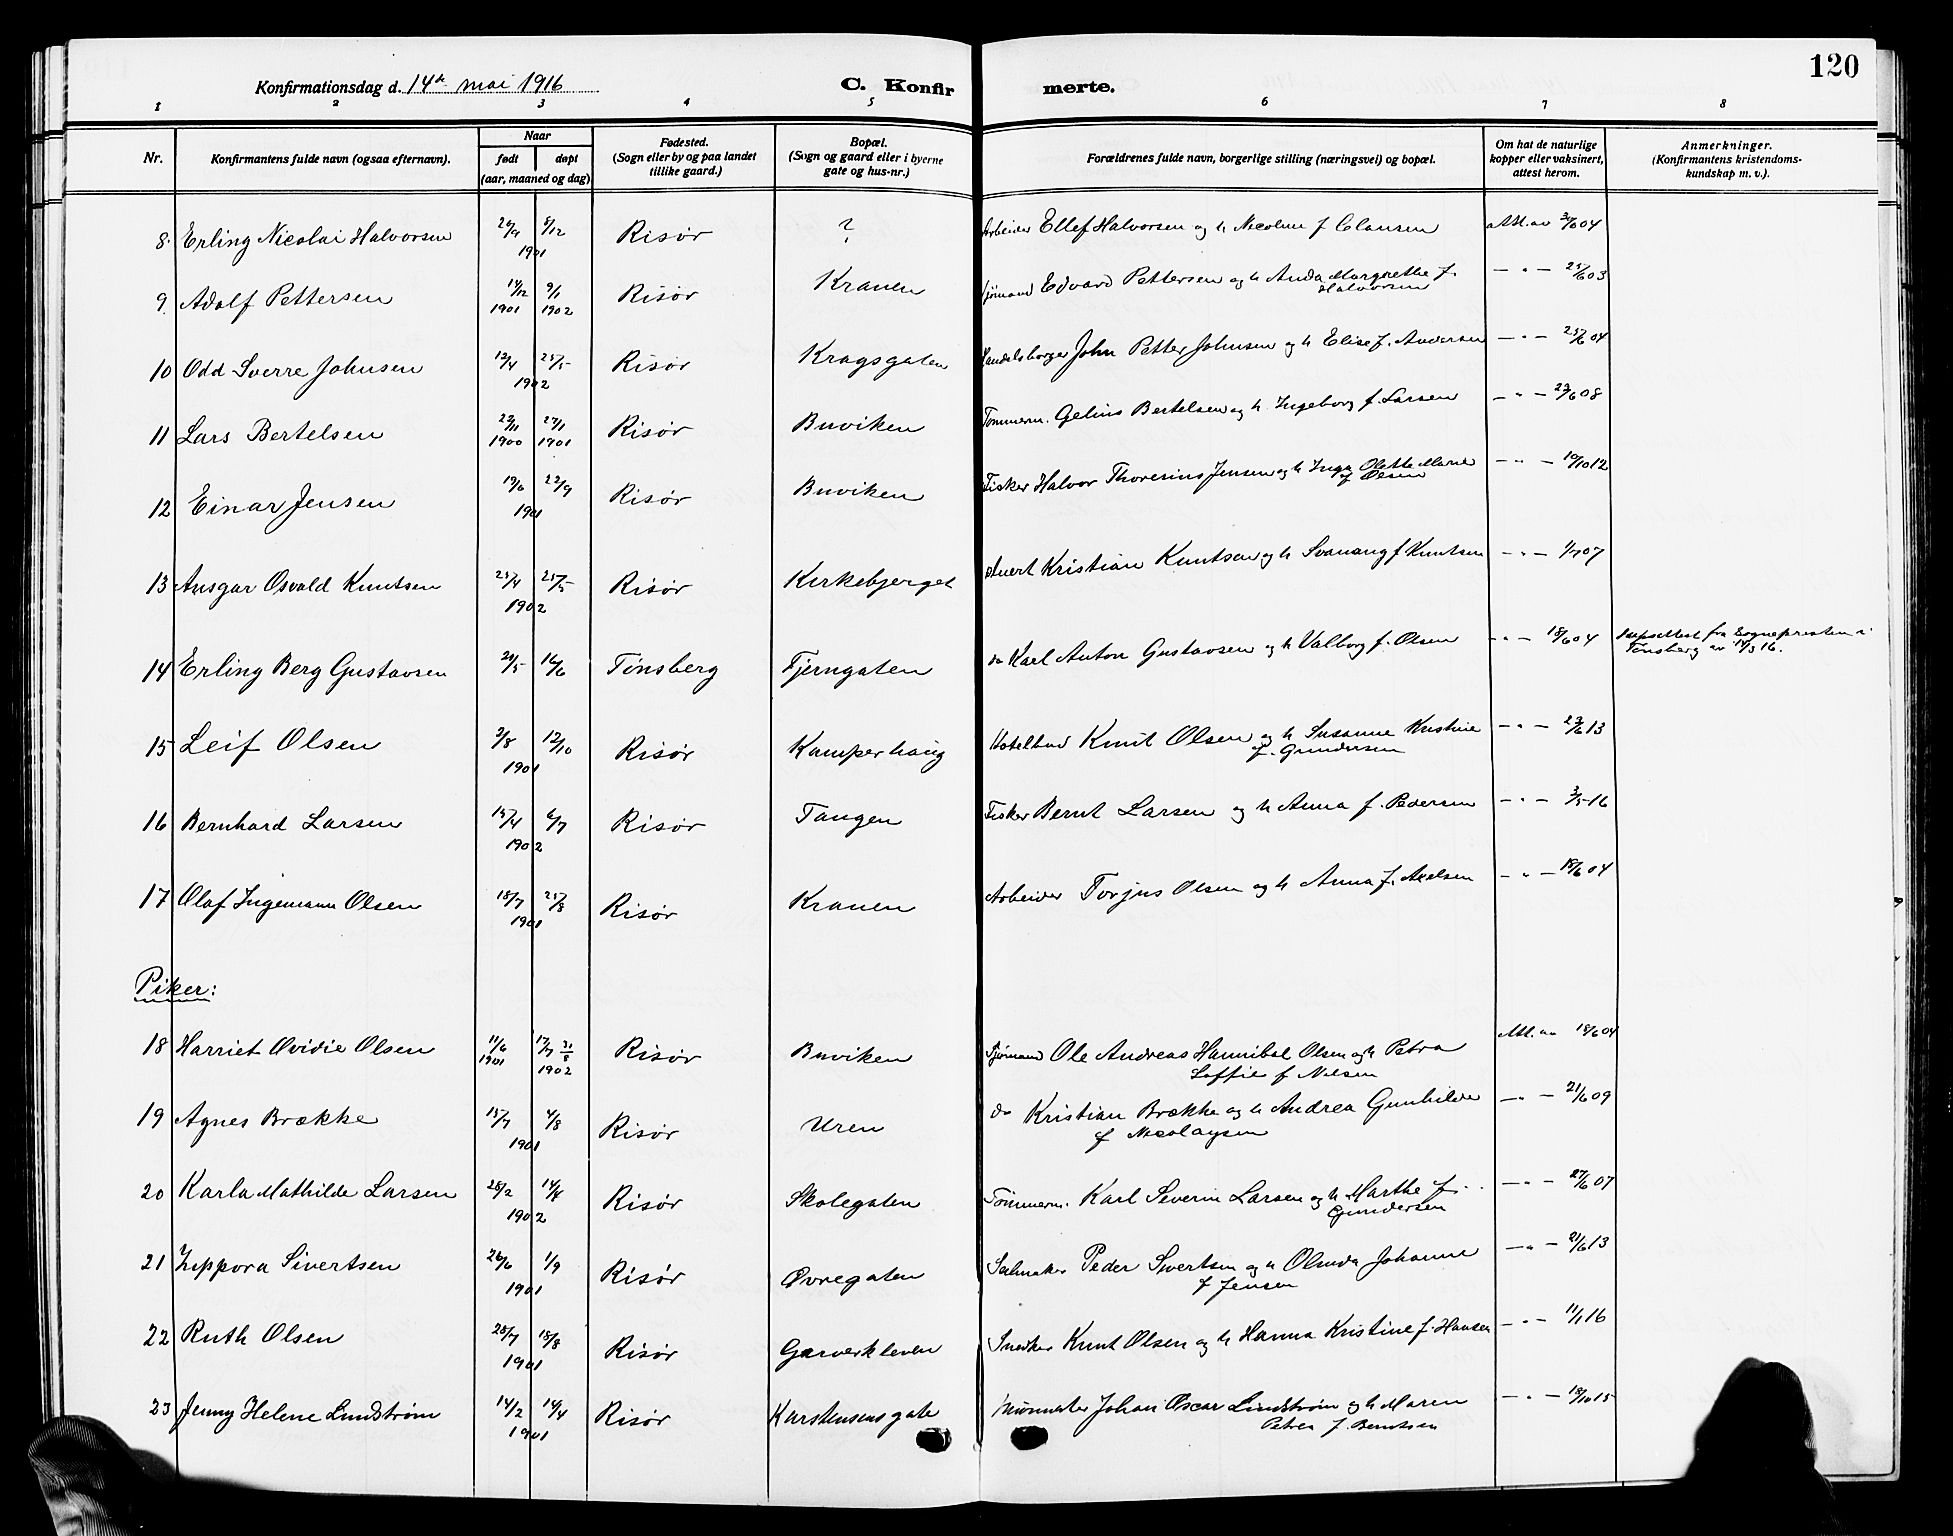 120
Konfirmationsdag d. 14de mai 1916 C. Konfirmerte.
1 2 3 4 5 6 7 8
Nr. Konfirmantens fulde navn (ogsaa efternavn). Naar født døpt (aar, maaned og dag) Fødested. (Sogn eller by og paa landet tillike gaard.) Bopæl. (Sogn og gaard eller i byerne gate og hus-nr.) Forældrenes fulde navn, borgerlige stilling (næringsvei) og bopæl. Om hat de naturlige kopper eller vaksinert, attest herom. Anmerkninger. (Konfirmantens kristendomskundskap m. v.).
8. Erling Nicolai Halvorsen 8/12 1901 Risør ? Arbeider Ellef Halvorsen og h. Nicoline f. Clausen Att. av 04
9. Adolf Pettersen 14/12 1901 9/1 1902 Risør Kranen Sjømand Edvard Pettersen og h. Anda Margrethe f. Halvorsen — " — 25/6 03
10 Odd Sverre Johnsen 12/4 25/5 1902 Risør Kragsgaten Handelsborger John Petter Johnsen og h. Elise f. Andersen — " — 25/6 04
11 Lars Bertelsen 22/11 1900 27/1 1901 Risør Buviken Tømmerm. Gelius Bertelsen og h. Ingeborg f. Larsen — " — 23/6 08
12 Einar Jensen 19/6 22/9 1901 Risør Buviken Fisker Halvor Thoresius Jensen og h. Inga Olette Marie f. Olsen — " — 19/10 12
13 Ansgar Osvald Knutsen 23/4 25/5 1902 Risør Kirkebjerget Kristian Knutsen og h. Svanaug f. Knutsen — " — 1/7 07
14 Erling Berg Gustavsen 21/5 16/6 Tønsberg Tjerngaten do Karl Anton Gustavsen og h. Valborg f. Olsen — " — 18/6 04 Daapsattest fra Sognepresten i Tønsberg av 14/3 16.
15 Leif Olsen 3/8 12/10 1901 Risør Kamperhaug Knut Olsen og h. Susanne Kristine f. Gundersen — " — 23/6 13
16 Bernhard Larsen 15/4 6/7 1902 Risør Tangen Fisker Bernt Larsen og h. Anna f. Pedersen — " — 3/5 16
17 Olaf Ingemann Olsen 18/7 25/8 1901 Risør Kranen Arbeider Torjus Olsen og h. Anna f. Axelsen — " — 18/6 04
Piker:
18 Harriet Ovidie Olsen 11/6 1901 17/7 31/8 1902 Risør Buviken Sjømand Ole Andreas Hannibal Olsen og h. Petra Soffie f. Nilsen Att. av 18/6 04
19 Agnes Brække 15/7 4/8 1901 Risør Uren do Kristian Brække og h. Andrea Gunhilde f. Nicolaysen — " — 21/6 09
20 Karla Mathilde Larsen 28/2 14/4 1902 Risør Skolegaten Tømmerm. Karl Severin Larsen og h. Marthe f. Gundersen — " — 27/6 07
21 Zippora Sivertsen 26/6 1/9 1901 Risør Øvregaten Seilmaker Peder Sivertsen og h. Olinda Johanne f. Jensen — " — 21/6 13
22 Ruth Olsen 28/7 18/8 1901 Risør Garverkleven Snedker Knut Olsen og h. Hanna Kristine f. Hansen — " — 11/1 16
23 Jenny Helene Lundstrøm 14/2 14/4 1901 Risør Karstensens gate Johan Oscar Lundstrøm og h. Maren Petrea f. Berntsen — " — 18/10 15